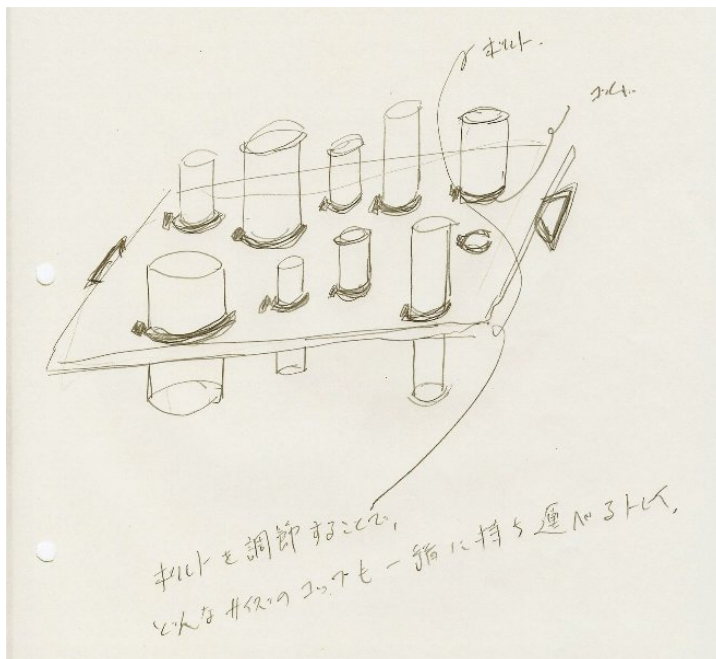 ボルト.
ゴム.
ボルトを調節することで、
どんなサイズのコップも一緒に持ち運べるトレイ.